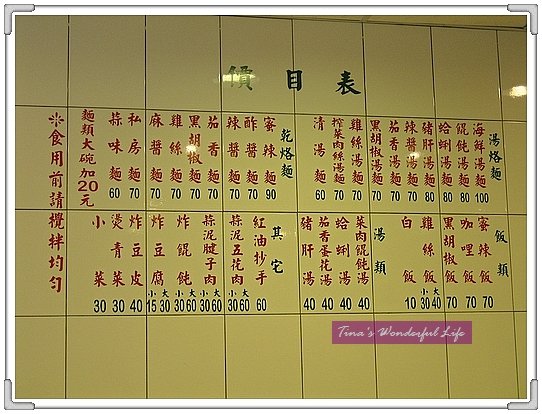 價目表
湯烙麵
海鮮湯麵 100
餛飩湯麵 80
蛤蜊湯麵 80
豬肝湯麵 80
辣醬湯麵 70
茄香湯麵 70
黑胡椒湯麵 70
雞絲湯麵 70
榨菜肉絲湯麵 70
清湯麵 60
乾烙麵
蜜辣麵 90
酢醬麵 70
辣醬麵 70
茄香麵 70
黑胡椒麵 70
雞絲麵 70
麻醬麵 70
私房麵 70
蒜味麵 60
麵類大碗加20元
※食用前請攪拌均勻
飯類
蜜辣飯 70
咖哩飯 70
黑胡椒飯 70
雞絲飯 小30 大40
白飯 10
湯類
菜肉餛飩湯 40
蛤蜊湯 40
茄香蛋花湯 40
豬肝湯 40
其它
紅油抄手 60
蒜泥五花肉 小30 大60
蒜泥腱子肉 小30 大60
炸餛飩 小30 大60
炸豆腐 小15 大30
炸豆皮 40
燙青菜 30
小菜 30
Tina's Wonderful Life